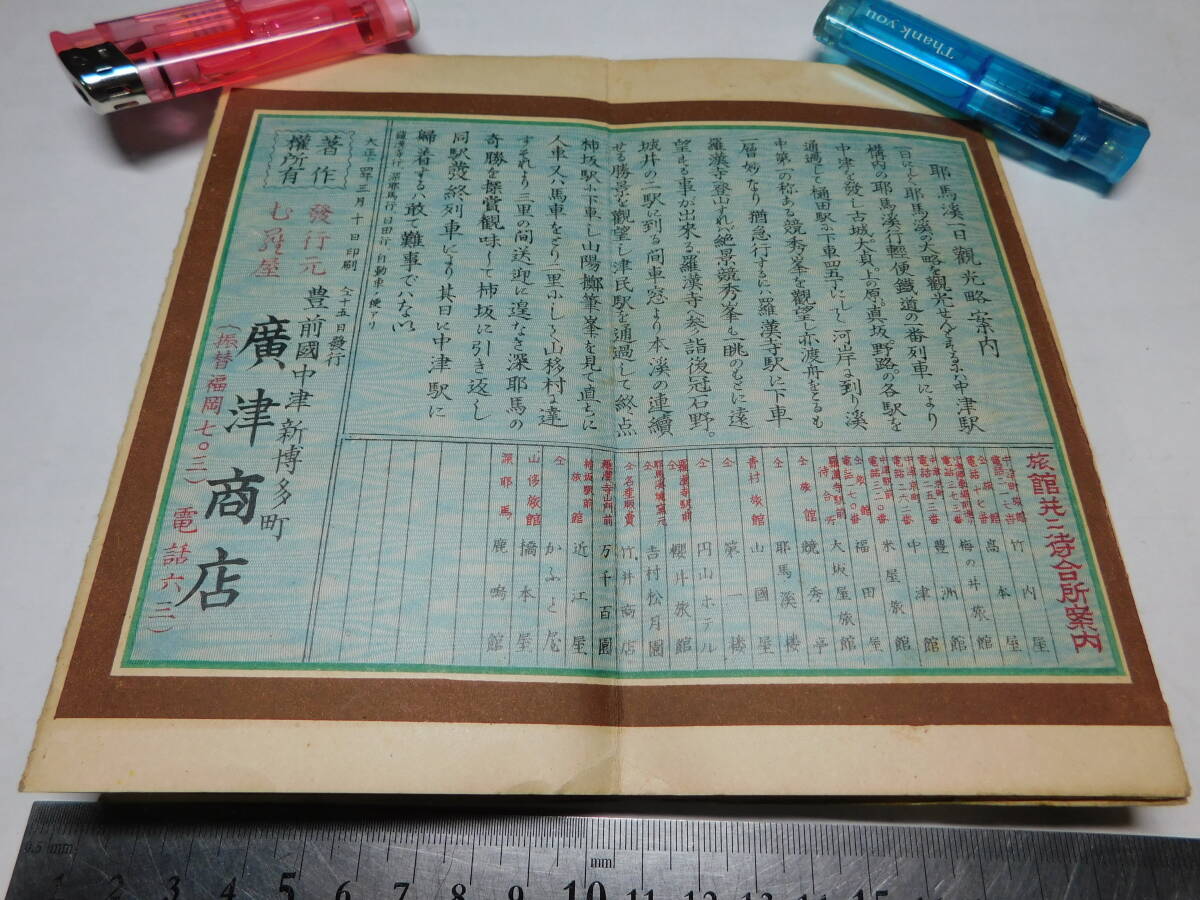 耶馬溪一日觀光略案内
一日にして耶馬溪の大略を觀光せんとするにハ中津駅
構内の耶馬溪行輕便鐵道の一番列車により
中津を發し古城、大貞、上の原、真坂、野路の各駅を
通過して樋田駅ニ下車四五丁にして河岸に到り溪
中第一の称ある競秀峯を觀望し亦渡舟をとるも
一層妙なり猶急行するにハ羅漢寺駅に下車
羅漢寺登山すれバ絶景競秀峯も一眺のもとに遠
望する事が出來る、羅漢寺へ参詣後冠石野。
城井の二駅に到る間車窓より本溪の連續
せる勝景を觀望し津民駅を通過して終点
柿坂駅ニ下車し山陽擲筆峯を見て直ちに
人車又ハ馬車をとり一里ニして山移村に達
すそれより三里の間送迎に遑なき深耶馬の
奇勝を探賞觀味して柿坂に引き返し
同駅發終列車により其日に中津駅に
歸着するハ敢て難事でハない
大正四年三月十日印刷 仝十五日發行
著作
權所有
發行元 豊前國中津新博多町
七㐂屋 廣津商店
(振替福岡七〇三) 電話六三)
旅館并ニ待合所案内
竹内屋
電話二一七番
仝 旅館 高本屋
電話十七番
梅の井旅館
電話七三番
豊洲館
電話二五三番
中津館
電話二六二番
米屋旅館
電話三二〇番
仝 旅館 福田屋
電話一七〇番
大坂屋旅館
羅漢寺駅前
待合所 競秀亭
仝 旅館 耶馬溪楼
青村旅館 山國屋
仝 第一楼
仝 円山ホテル
羅漢寺駅前
仝 櫻井旅館
吉村松月園
仝 名産販賣 竹井商店
羅漢寺山門前 万千百園
柿坂駅前
旅館 近江屋
仝 かふと屋
山移旅館 橋本屋
深耶馬 鹿鳴館
Thank you
0.5 mm
mm
1 2 3 4 5 6 7 8 9 10 11 12 13 14 15